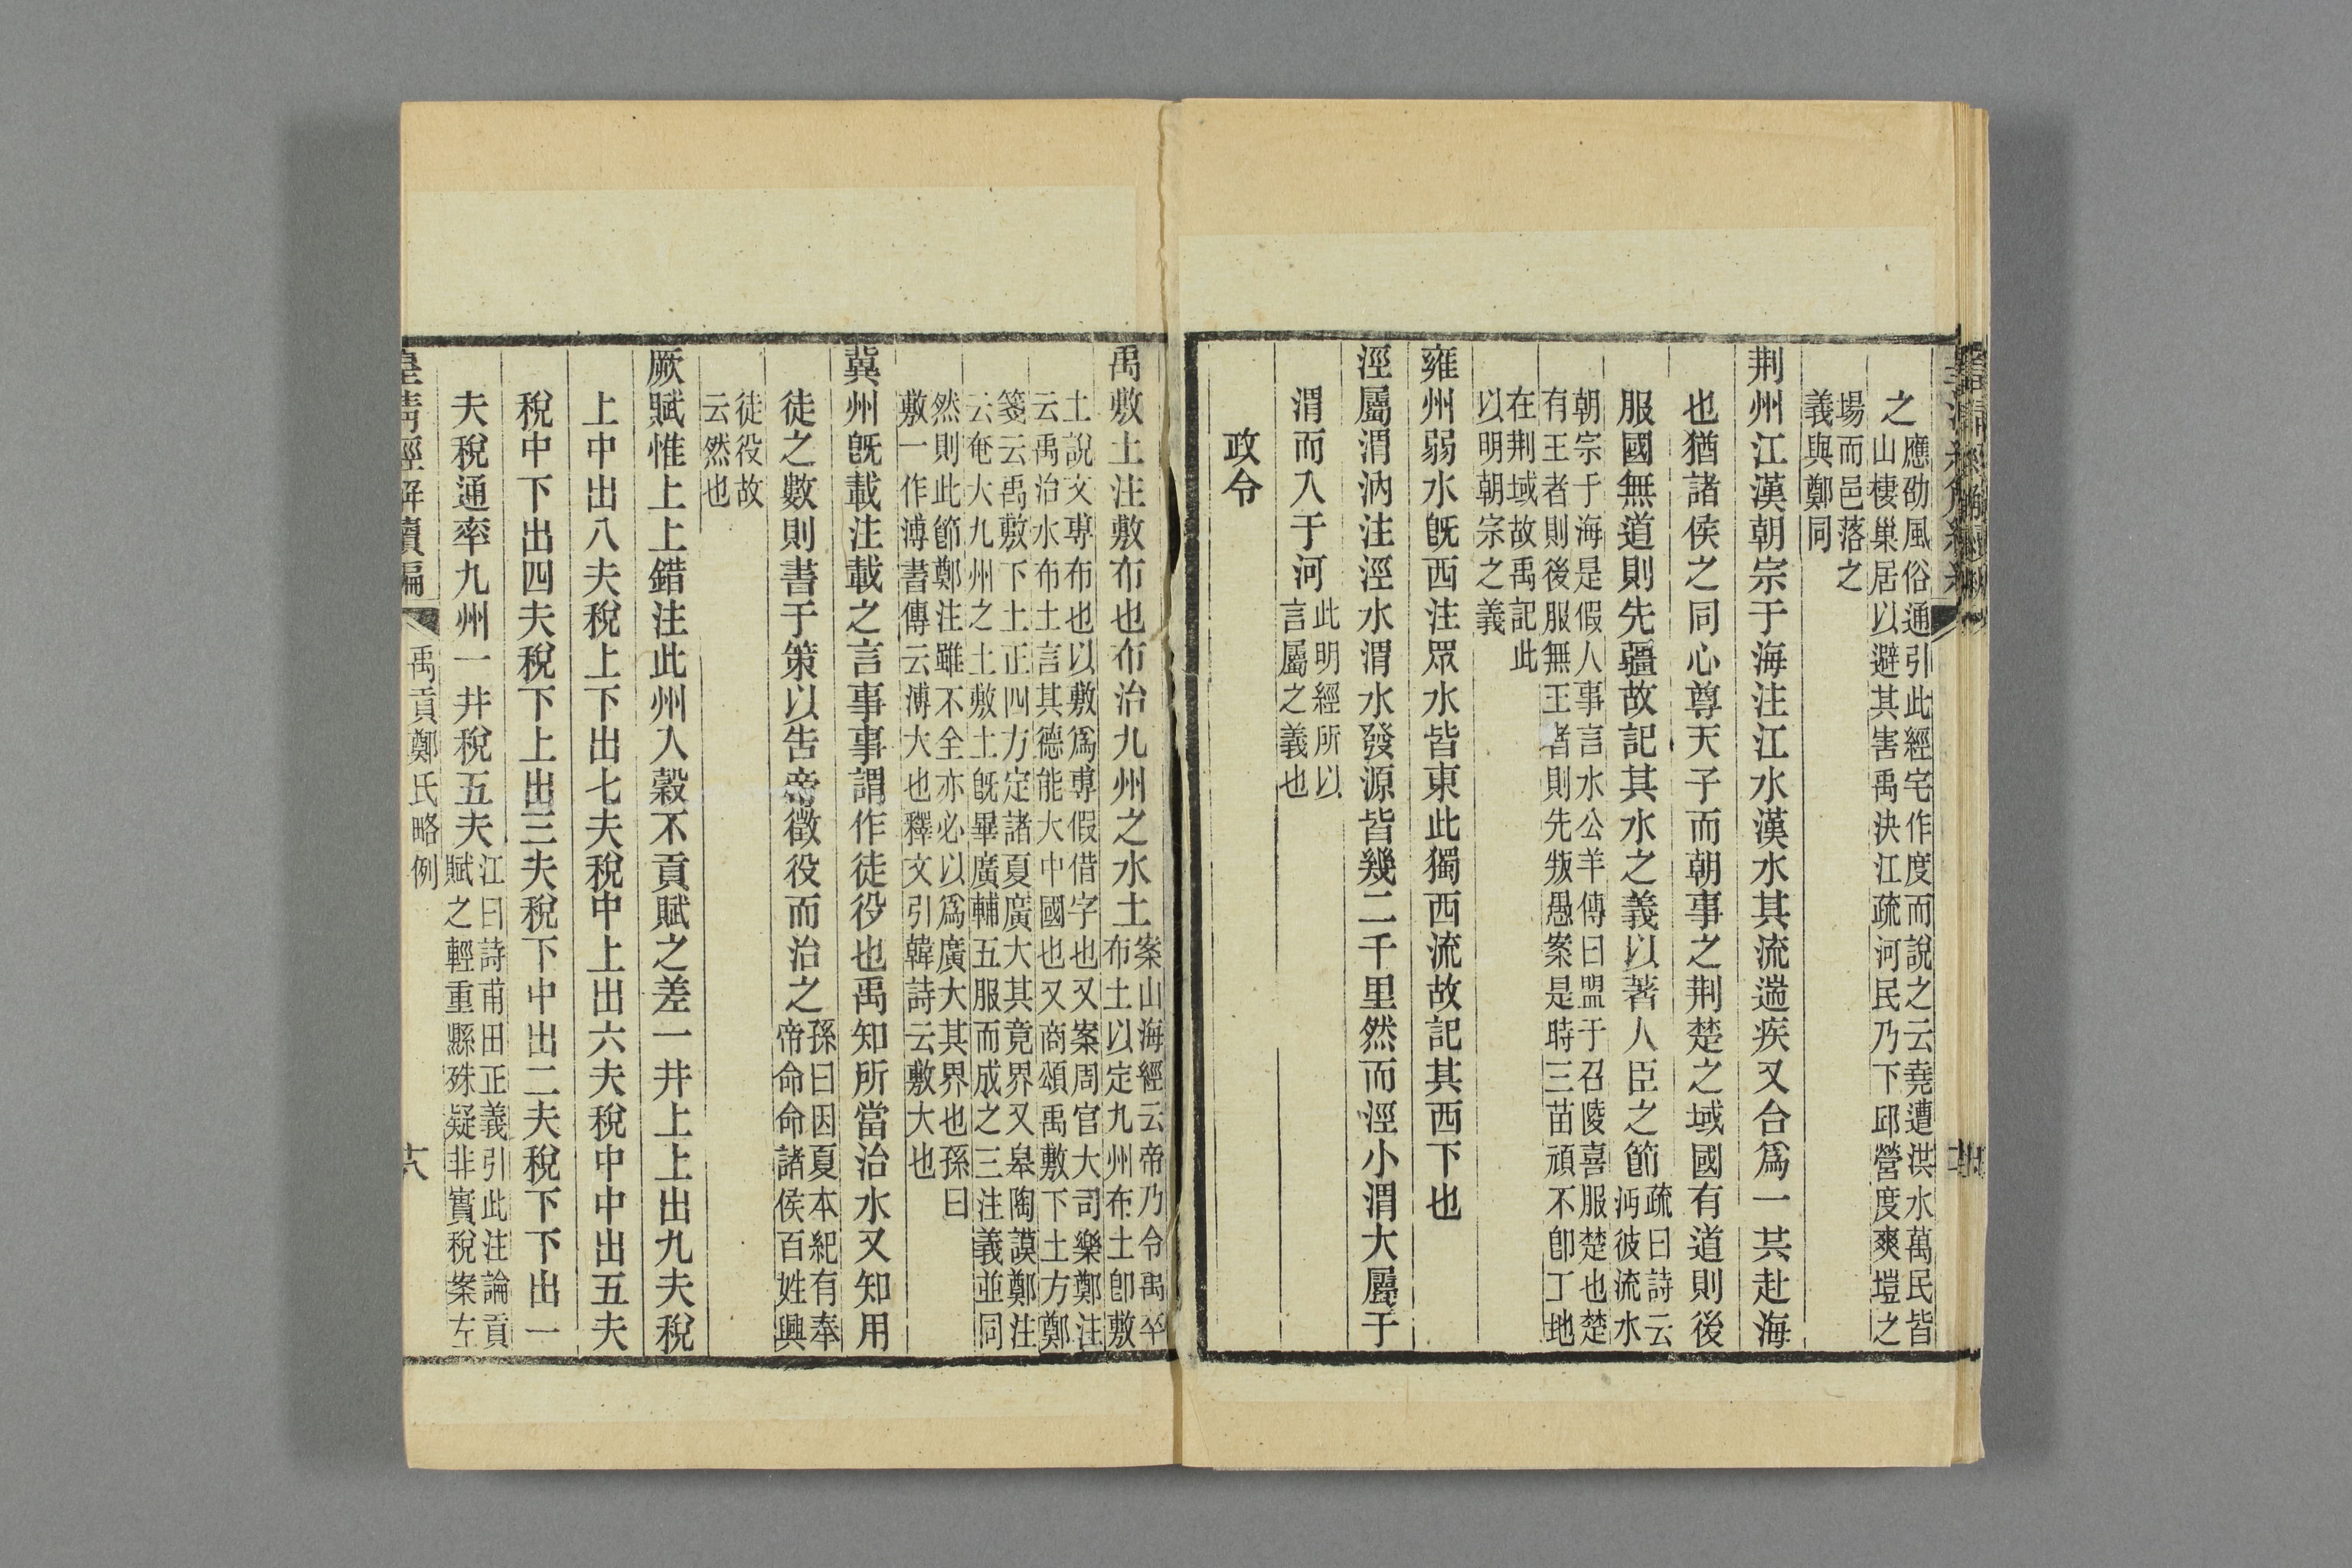 之應劭風俗通引此經宅作度而說之云堯遭洪水萬民皆
山棲巢居以避其害禹決江疏河民乃下邱營度爽塏之
場而邑落之
義與鄭同
荆州江漢朝宗于海注江水漢水其流遄疾又合爲一共赴海
也猶諸侯之同心尊天子而朝事之荆楚之域國有道則後
服國無道則先疆故記其水之義以著人臣之節疏曰詩云
沔彼流水
朝宗于海是假人事言水公羊傳曰盟于召陵喜服楚也楚
有王者則後服無王者則先叛愚案是時三苗頑不卽丁地
在荆域故禹記此
以明朝宗之義
雍州弱水旣西注眾水皆東此獨西流故記其西下也
涇屬渭汭注涇水渭水發源皆幾二千里然而涇小渭大屬于
渭而入于河此明經所以
言屬之義也
政令
禹敷土注敷布也布治九州之水土案山海經云帝乃令禹卒
布土以定九州布土卽敷
土說文尃布也以敷爲尃假借字也又案周官大司樂鄭注
云禹治水布土言其德能大中國也又商頌禹敷下土方鄭
箋云禹敷下土正四方定諸夏廣大其竟界又皋陶謨鄭注
云奄大九州之土敷土旣畢廣輔五服而成之三注義並同
然則此節鄭注雖不全亦必以爲廣大其界也孫曰
敷一作溥書傳云溥大也釋文引韓詩云敷大也
冀州旣載注載之言事事謂作徒役也禹知所當治水又知用
徒之數則書于策以告帝徵役而治之孫曰因夏本紀有奉
帝命命諸侯百姓興
徒役故
云然也
厥賦惟上上錯注此州入穀不貢賦之差一井上上出九夫稅
上中出八夫稅上下出七夫稅中上出六夫稅中中出五夫
稅中下出四夫稅下上出三夫稅下中出二夫稅下下出一
夫稅通率九州一井稅五夫江曰詩甫田正義引此注論貢
賦之輕重縣殊疑非實稅案左
皇清經解續編
禹貢鄭氏略例